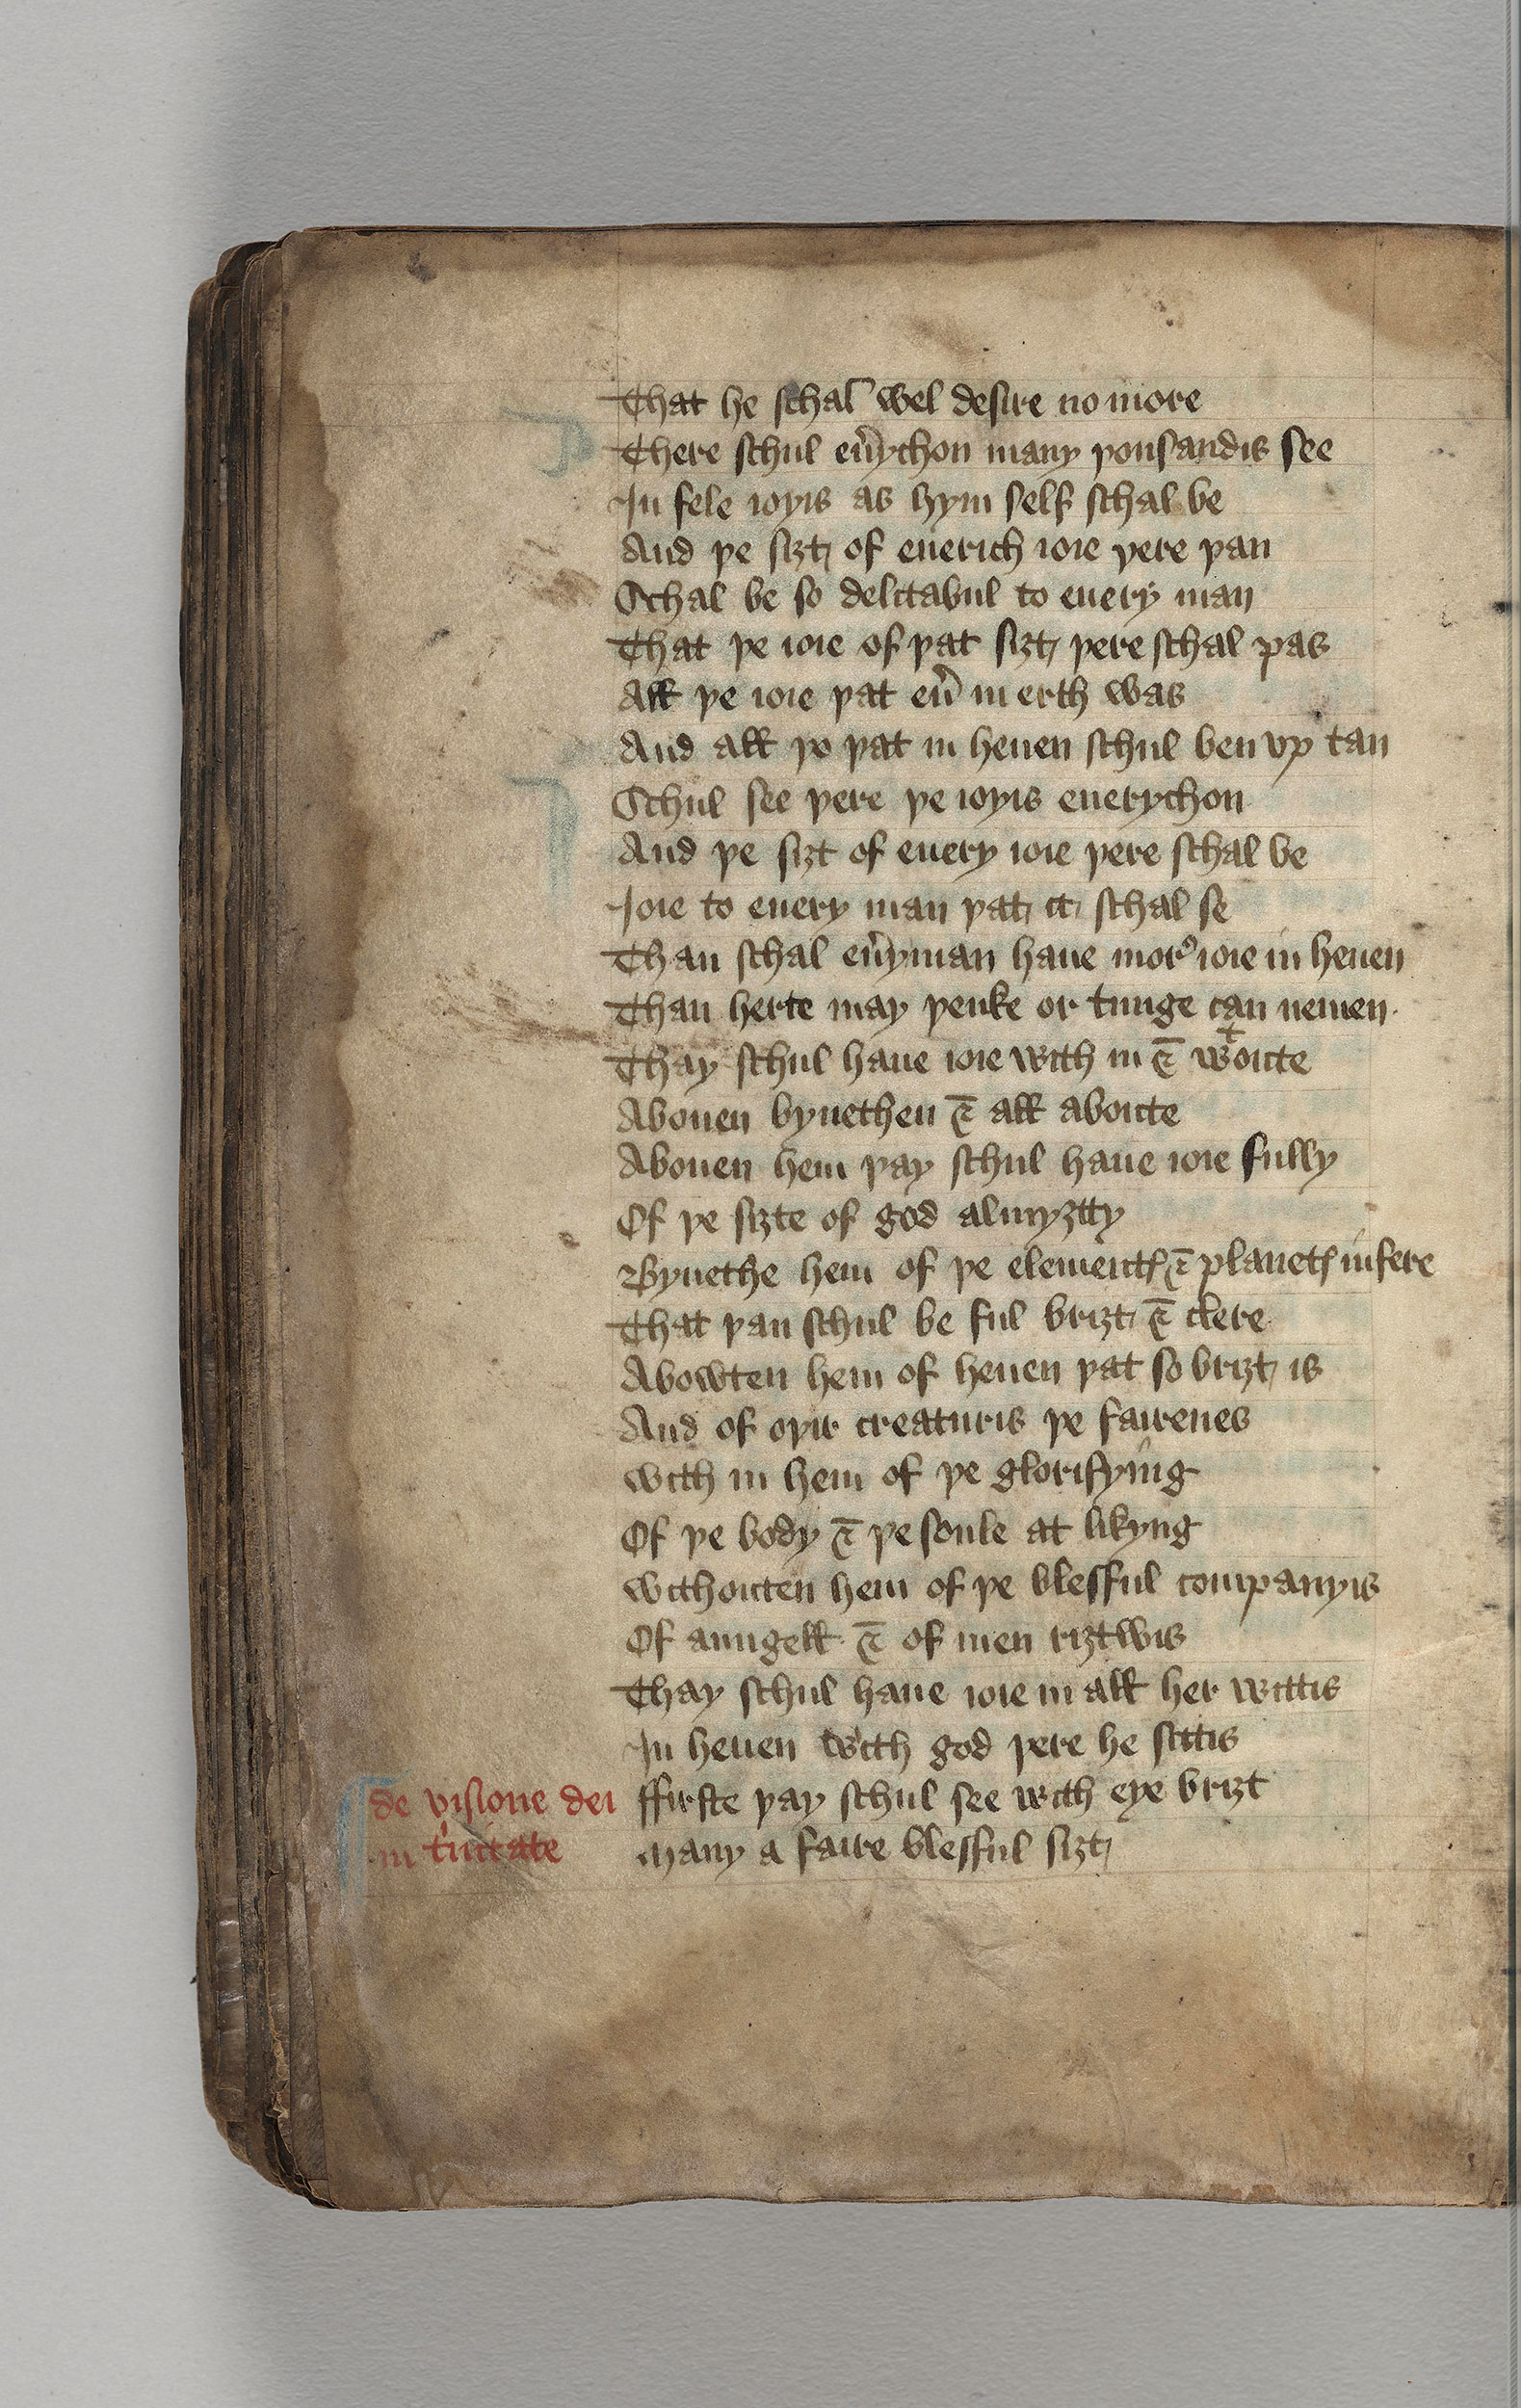 That he schal wel desire no more
There schul eu̾ychon many þousandis see
In fele ioyis as hym self schal be
And þe siȝt of euerich ioie þere þan
Schal be so delitabul to euery man
That þe ioie of þat siȝt þere schal pas
All þe ioie þat eu̾ in erth was
And all þo þat in heuen schul ben vp tan
Schul see þere þe ioyis euerychon
And þe siȝt of euery ioie þere schal be
Ioie to euery man þat it schal se
Than schal eu̾yman haue mor᷒ ioie in heuen
Than herte may þenke or tunge can nemen·
Thay schul haue ioie with in ⁊ wᵗoute
Abouen bynethen ⁊ all aboute
Abouen hem þay schul haue ioie fully
Of þe siȝte of god almyȝtty
Bynethe hem of þe elementꝭ ⁊ planetꝭ infere
That þan schul be ful briȝt ⁊ clere
Abowten hem of heuen þat so briȝt is
And of oþir creaturis þe fairenes
with in hem of þe glorifying
Of þe body ⁊ þe soule at likyng
withouten hem of þe blesful companyis
Of aungell ⁊ of men riȝtwis
Thay schul haue ioie in all her wittis
In heuen with god þere he sittis
de visione dei ffirste þay schul see with eye briȝt
in t'nitate many a faire blesful siȝt